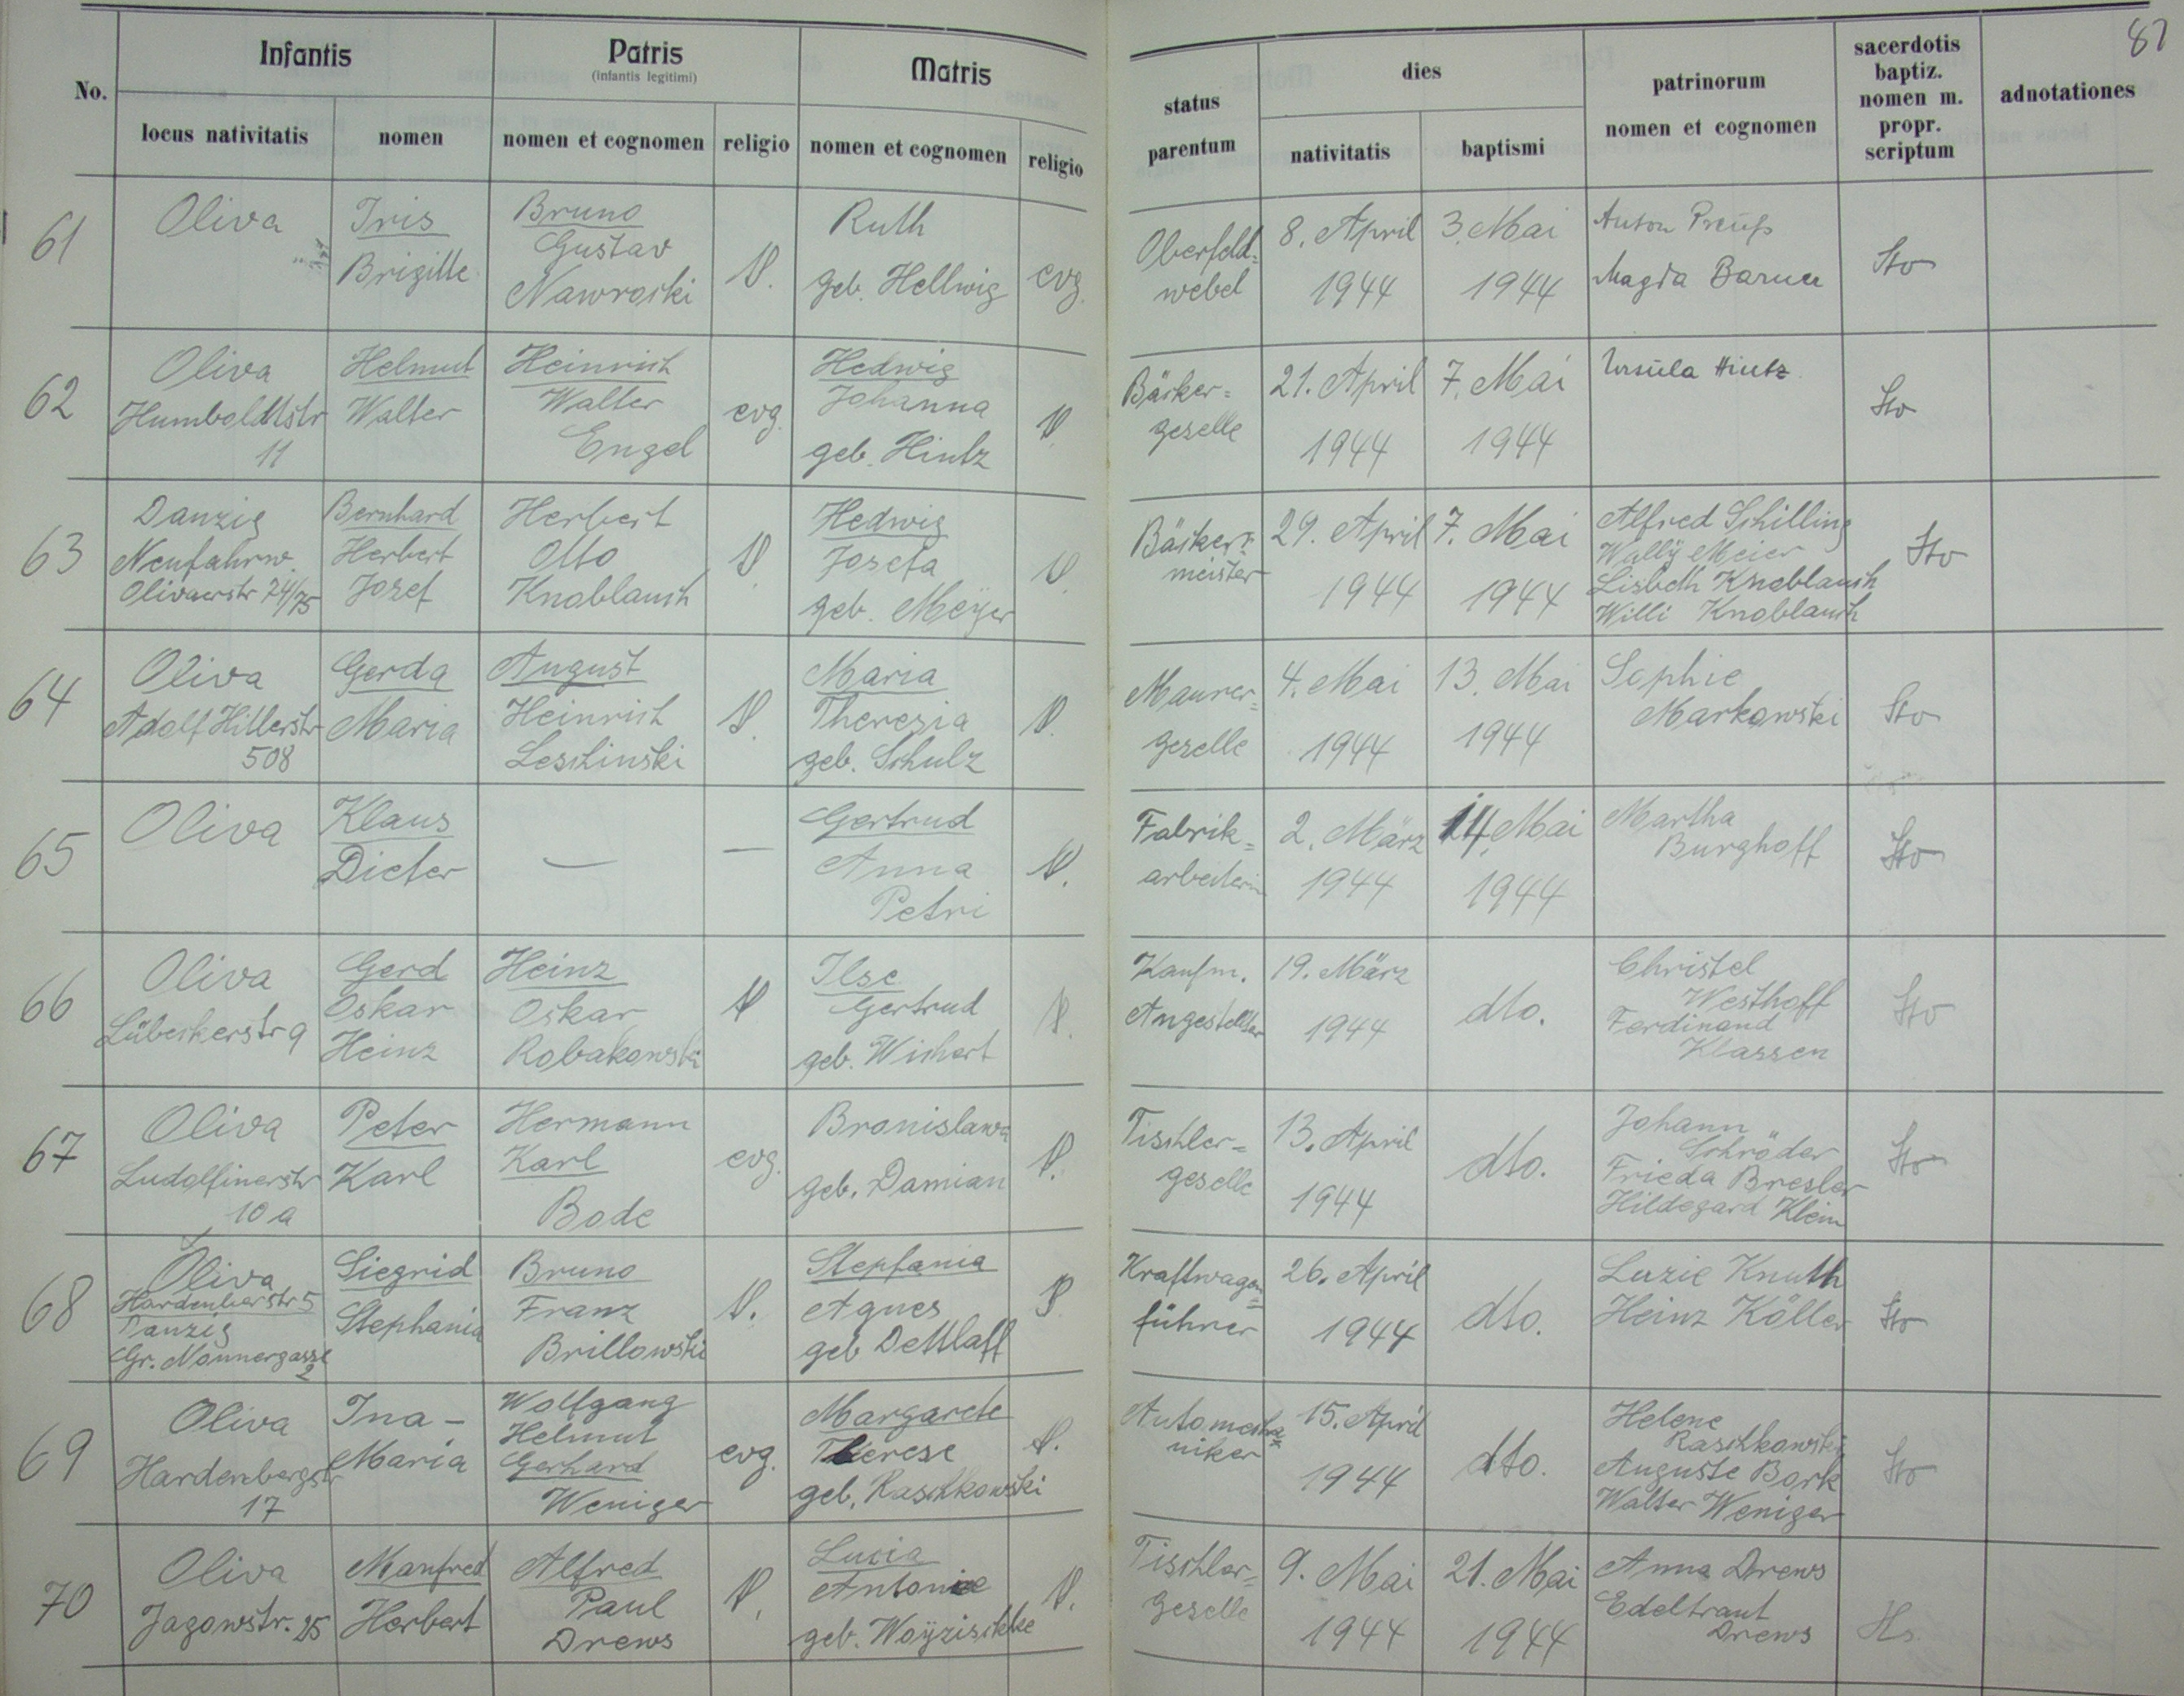 87
Infantis
Patris
(infantis legitimi)
Matris
status parentum
dies
patrinorum
nomen et cognomen
sacerdotis
baptiz.
nomen m.
propr.
scriptum
adnotationes
No.
locus nativitatis
nomen
nomen et cognomen
religio
nomen et cognomen
religio
nativitatis
baptismi
61
Oliva
Iris
Brigitte
Bruno
Gustav
Nawroski
Ruth
geb. Hellwig
evg.
Oberfeld=
webel
8. April
1944
3. Mai
1944
Anton Preuß
Magda
Sto
62
Oliva
Humboldtstr
11
Helmut
Walter
Heinrich
Walter
Engel
evg.
Hedwig
Johanna
geb. Hintz
Bäcker=
geselle
21. April
1944
7. Mai
1944
Ursula Hintz
Sto
63
Danzig
Neufahrw.
Olivaerstr 74/75
Bernhard
Herbert
Josef
Herbert
Otto
Knoblauch
Hedwig
Josefa
geb. Meÿer
Bäcker=
meister
29. April
1944
7. Mai
1944
Alfred Schilling
Wally Meier
Lisbeth Knoblauch
Willi Knoblauch
Sto
64
Oliva
Adolf Hitlerstr
508
Gerda
Maria
August
Heinrich
Leschinski
Maria
Theresia
geb. Schulz
Maurer=
geselle
4. Mai
1944
13. Mai
1944
Sophie
Markowski
Sto
65
Oliva
Klaus
Dieter
—
—
Gertrud
Anna
Petri
Fabrik=
arbeiterin
2. März
1944
14. Mai
1944
Martha
Burghoff
Sto
66
Oliva
Lübeckerstr 9
Gerd
Oskar
Heinz
Heinz
Oskar
Robakowski
Ilse
Gertrud
geb. Wichert
Kaufm.
Angestellter
19. März
1944
dto.
Christel
Westhoff
Ferdinand
Klassen
Sto
67
Oliva
Ludolfinerstr
10 a
Peter
Karl
Hermann
Karl
Bode
evg.
Bronislawa
geb. Damian
Tischler=
geselle
13. April
1944
dto.
Johann
Schröder
Frieda Bresler
Hildegard Klein
Sto
68
Oliva
Hardenberstr 5
Danzig
Gr. Nonnengasse
2
Siegrid
Stephania
Bruno
Franz
Brillowski
Stephania
Agnes
geb Dettlaff
Kraftwagen=
führer
26. April
1944
dto.
Luzie Knuth
Heinz Köller
Sto
69
Oliva
Hardenbergstr
17
Ina -
Maria
Wolfgang
Helmut
Gerhard
Weniger
evg.
Margarete
Therese
geb. Raschkowski
Automecha=
niker
15. April
1944
dto.
Helene
Raschkowski
Auguste Bork
Walter Weniger
Sto
70
Oliva
Jagowstr. 25
Manfred
Herbert
Alfred
Paul
Drews
Lucia
Antonie
geb. Woÿzischke
Tischler=
geselle
9. Mai
1944
21. Mai
1944
Anna Drews
Edeltraut
Drews